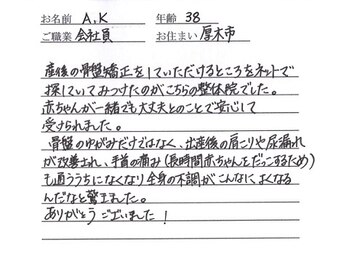 お名前 A.K 年齢 38
ご職業 会社員 お住まい 厚木市
産後の骨盤矯正をしていただけるところをネットで
探していてみつけたのがこちらの整体院でした。
赤ちゃんが一緒でも大丈夫とのことで安心して
受けられました。
骨盤のゆがみだけではなく、出産後の肩こりや尿漏れ
が改善され、手首の痛み(長時間赤ちゃんをだっこするため)
も通ううちになくなり全身の不調がこんなによくなる
んだなと驚きました。
ありがとうございました!